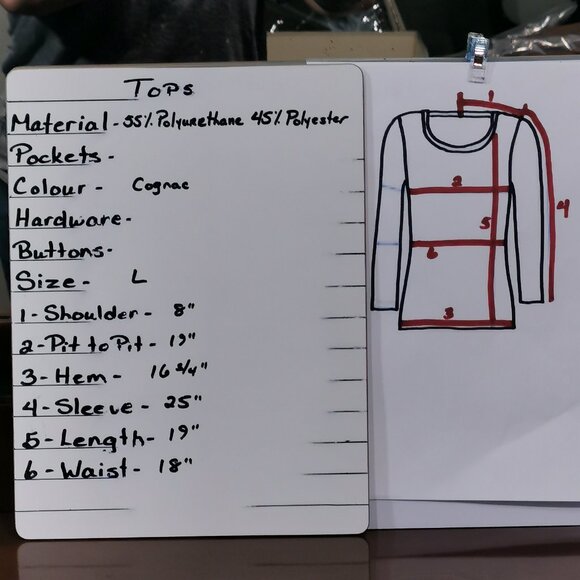 Tops
Material - 55% Polyurethane 45% Polyester
Pockets -
Colour - Cognac
Hardware -
Buttons -
Size - L
1 - Shoulder - 8"
2 - Pit to Pit - 19"
3 - Hem - 16 3/4"
4 - Sleeve - 25"
5 - Length - 19"
6 - Waist - 18"
1
2
4
5
6
3